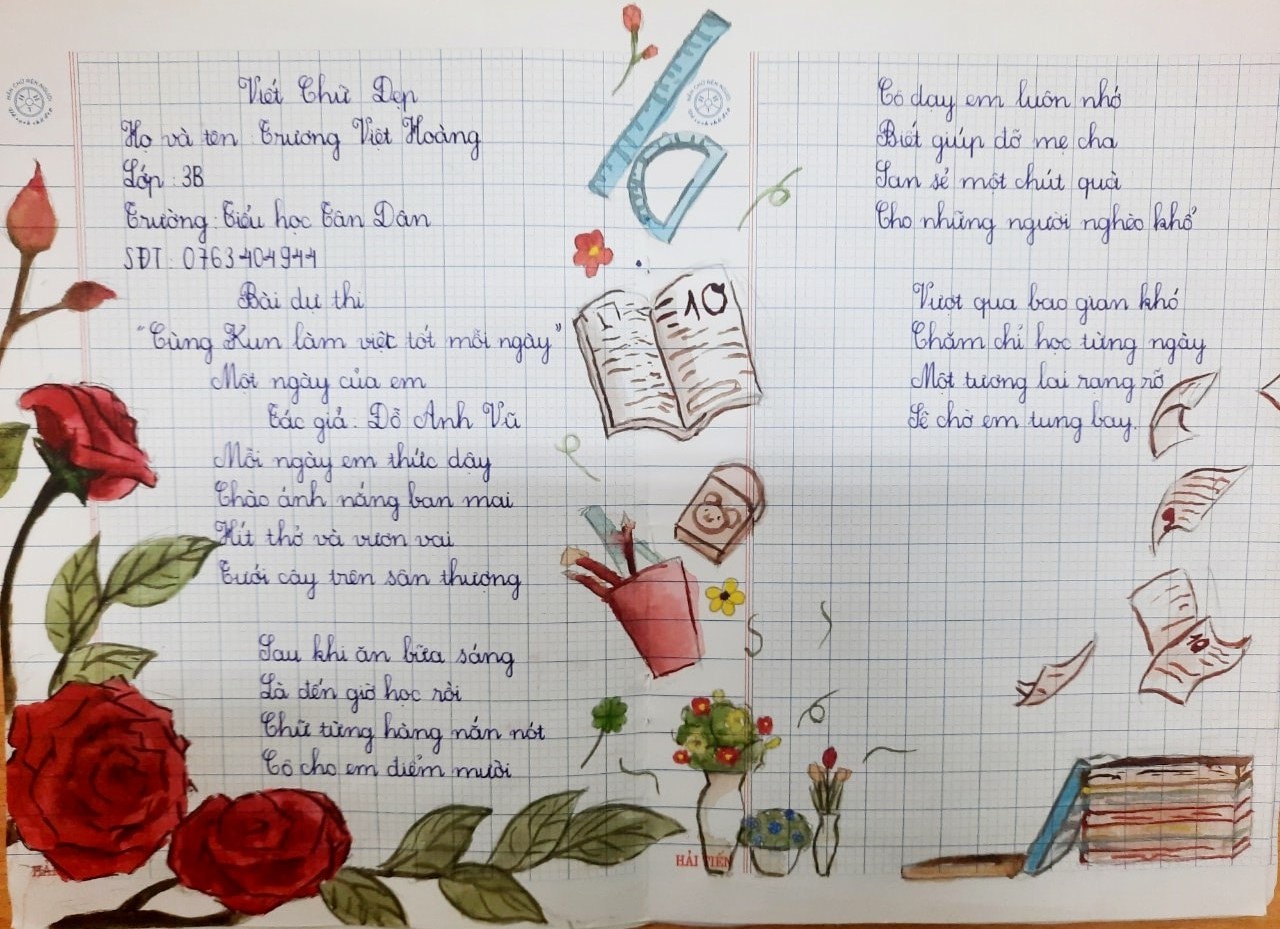 Viết Chữ Đẹp
Họ và tên: Trương Việt Hoàng
Lớp: 3B
Trường: Tiểu học Tân Dân
SĐT: 0763404944
Bài dự thi
"Cùng Kun làm việc tốt mỗi ngày"
Một ngày của em
Tác giả: Đỗ Anh Vũ
Mỗi ngày em thức dậy
Chào ánh nắng ban mai
Hít thở và vươn vai
Tưới cây trên sân thượng
Sau khi ăn bữa sáng
Là đến giờ học rồi
Chữ từng hàng nắn nót
Cô cho em điểm mười
Cô dạy em luôn nhớ
Biết giúp đỡ mẹ cha
San sẻ một chút quà
Cho những người nghèo khổ
Vượt qua bao gian khó
Chăm chỉ học từng ngày
Một tương lai rạng rỡ
Sẽ chờ em tung bay.
10
10
HẢI TIẾN